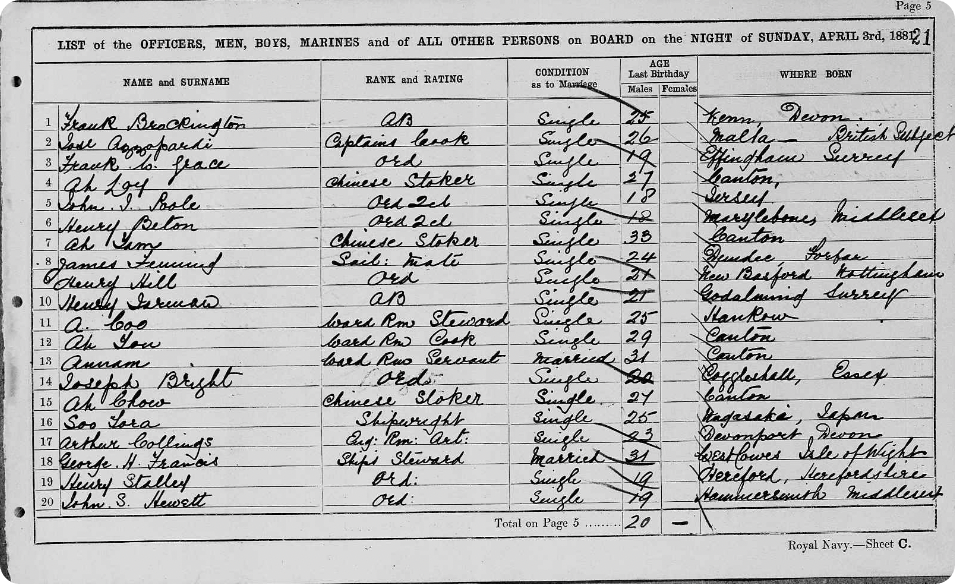 Page 5
LIST of the OFFICERS, MEN, BOYS, MARINES and of ALL OTHER PERSONS on BOARD on the NIGHT of SUNDAY, APRIL 3rd, 1881. 21
NAME and SURNAME RANK and RATING CONDITION as to Marriage AGE Last Birthday Males Females WHERE BORN
1 Frank Brockington AB Single 25 Kenn, Devon.
2 Jose Azzopardi Captains Cook Single 26 Malta — British Subject
3 Frank W. Grace Ord Single 19 Effingham Surrey
4 Ah Loy Chinese Stoker Single 27 Canton,
5 John I. Poole Ord 2cl Single 18 Jersey
6 Henry Beton Ord 2cl Single 18 Marylebone, Middlesex
7 Ah Tam Chinese Stoker Single 33 Canton
8 James Fleming Sail: Mate Single 24 Dundee, Forfar
Henry Hill Ord Single 21 New Basford Nottingham
10 Henry Jarman AB Single 21 Godalming Surrey
11 A. Coo Ward Rm Steward Single 25 Hankow
12 Ah You Ward Rm Cook Single 29 Canton
13 Annam Ward Rm Servant Married 31 Canton
14 Joseph Bright Ord Single 20 Coggleshall, Essex
15 Ah Chow Chinese Stoker Single 27 Canton
16 Soo Tora Shipwright Single 25 Nagasaki, Japan
17 Arthur Collings Eng: Rm: Art: Single 23 Devonport Devon
18 George H. Francis Ships Steward Married 31 West Cowes Isle of Wight
19 Henry Stalley Ord: Single 19 Hereford, Herefordshire
20 John S. Hewett Ord: Single 19 Hammersmith Middlesex
Total on Page 5 ......... 20 —
Royal Navy.—Sheet C.